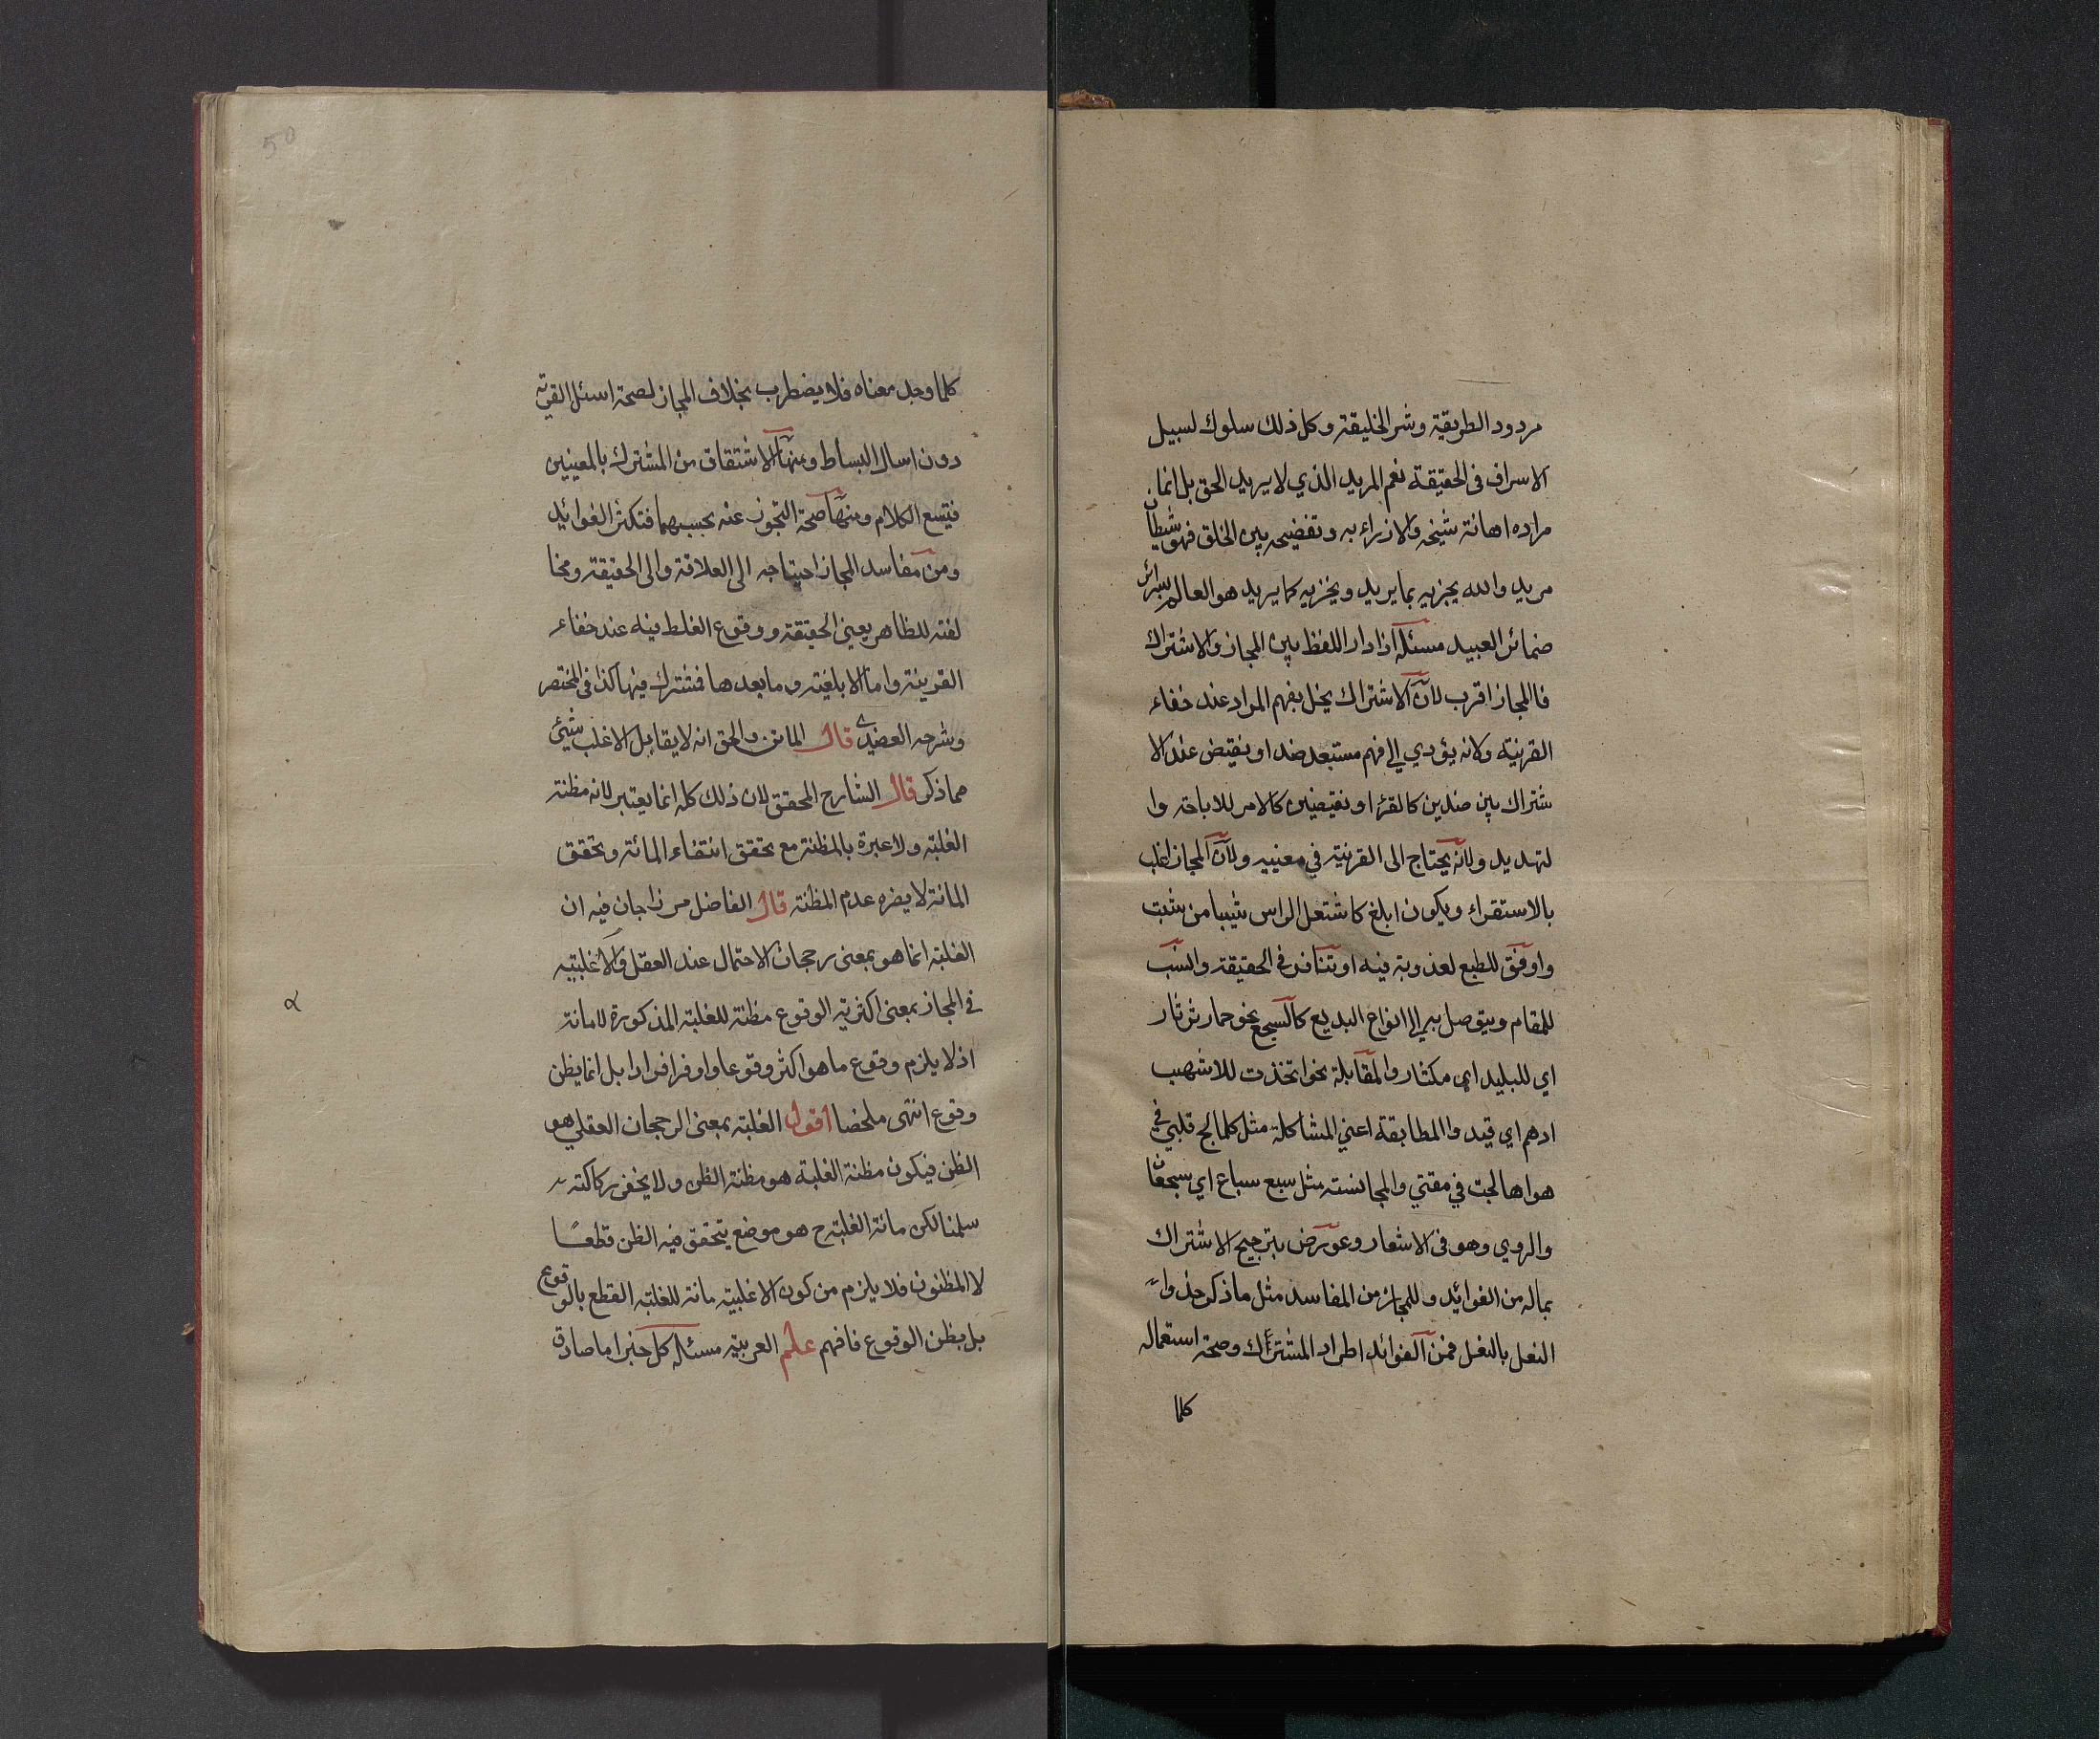 مردود الطريقة وشر الخليقة وكل ذلك سلوك لسبيل
الاسراف فى الحقيقة نعم المريد الذي لا يريد الحق بل انما
مراده اهانة شيخه والازراء به وتفضيحه بين الخلق فهو شيطان
مريد والله يجزيه بما يريد ويخزيه كما يريد هو العالم بسرائر
ضمائر العبيد مسئلة اذا دار اللفظ بين المجاز والاشتراك
فالمجاز اقرب لان الاشتراك يخل بفهم المراد عند خفاء
القرينة ولانه يؤدي الى فهم مستبعد ضد او نقيض عند الا
شتراك بين ضدين كالقرء او نقيضين كالامر للاباحة وا
لتهديد ولانه يحتاج الى القرينة في معنييه ولان المجاز اغلب
بالاستقراء ويكون ابلغ كاشتعل الراس شيبا من شبت
واوفق للطبع لعذوبة فيه او تنافر في الحقيقة وانسب
للمقام ويتوصل به الى انواع البديع كالسجع نحو حمار ثرثار
اي للبليد اي مكثار والمقابلة نحو اتخذت للاشهب
ادهم اي قيد والمطابقة اعني المشاكلة مثل كلما لج قلبي في
هواها لجت في مقتي والمجانسة مثل سبع سباع اي شجعان
والروي وهو فى الاشعار وعورض بترجيح الاشتراك
بماله من الفوائد وللمجاز من المفاسد مثل ما ذكر حذو ا
النعل بالنعل فمن الفوائد اطراد المشترك وصحة استعماله
كلما
50
كلما وجد معناه فلا يضطرب بخلاف المجاز لصحة اسئل القرية
دون اسال البساط ومنها الاشتقاق من المشترك بالمعنيين
فيتسع الكلام ومنها صحة التجوز عنه بحسبهما فتكثر الفوائد
ومن مفاسد المجاز احتياجه الى العلاقة والى الحقيقة ومخا
لفته للظاهر يعني الحقيقة ووقوع الغلط فيه عند خفاء
القرينة واما الابلغية وما بعدها فمشترك فيها كذا فى المختصر
وشرحه العضدي قال الماتن والحق انه لا يقابل الاغلب شيئ
مما ذكر قال الشارح المحقق لان ذلك كله انما يعتبر لانه مظنة
الغلبة ولا عبرة بالمظنة مع تحقق انتفاء المائنة وتحقق
المانة لا يضره عدم المظنة قال الفاضل مرزا جان فيه ان
الغلبة انما هو بمعنى رجحان الاحتمال عند العقل والاغلبية
في المجاز بمعنى اكثرية الوقوع مظنة للغلبة المذكورة لا مانة
اذ لا يلزم وقوع ما هو اكثر وقوعا واوفر افرادا بل انما يظن
وقوع انتهى ملخصا اقول الغلبة بمعنى الرجحان العقلي هو
الظن فيكون مظنة الغلبة هو مظنة الظن ولا يخفى ركاكته
سلمنا لكن مانة الغلبة ح هو موضع يتحقق فيه الظن قطعا
لا المظنون فلا يلزم من كون الاغلبية مانة للغلبة القطع بالوقوع
بل بظن الوقوع فافهم علم العربية مسئلة كل خبر اما صادق